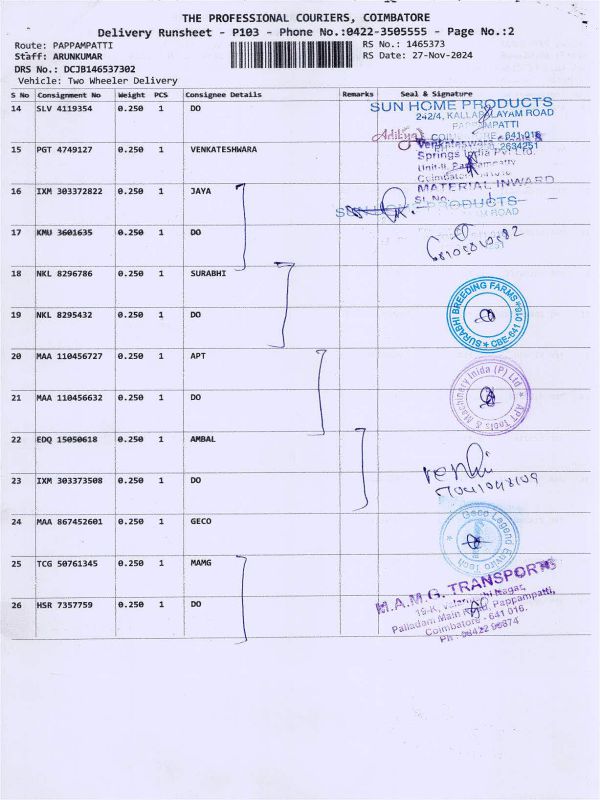 THE PROFESSIONAL COURIERS, COIMBATORE
Delivery Runsheet - P103 - Phone No.:0422-3505555 - Page No.:2
Route: PAPPAMPATTI
RS No.: 1465373
Staff: ARUNKUMAR
RS Date: 27-Nov-2024
DRS No.: DCJB146537302
Vehicle: Two Wheeler Delivery
S No Consignment No Weight PCS Consignee Details Remarks Seal & Signature
14 SLV 4119354 0.250 1 DO
SUN HOME PRODUCTS
242/4, KALLAPALAYAM ROAD
PAPPAMPATTI
Aditya
641 016
2634251
15 PGT 4749127 0.250 1 VENKATESHWARA
Venkateswara
Springs India Pvt Ltd.
Unit-II, Pappampatty
Coimbatore
MATERIAL INWARD
SI. No.
16 IXM 303372822 0.250 1 JAYA
SUN HOME PRODUCTS
ROAD
17 KMU 3601635 0.250 1 DO
18 NKL 8296786 0.250 1 SURABHI
SURABHI BREEDING FARMS
* CBE-641 016 *
19 NKL 8295432 0.250 1 DO
20 MAA 110456727 0.250 1 APT
APT Tools & Machinery Inida (P) Ltd
21 MAA 110456632 0.250 1 DO
22 EDQ 15050618 0.250 1 AMBAL
23 IXM 303373508 0.250 1 DO
24 MAA 867452601 0.250 1 GECO
Geco Legend Enviro Tech
25 TCG 50761345 0.250 1 MAMG
M.A.M.G. TRANSPORTS
19-K, Nagar,
Palladam Main Road, Pappampatti,
Coimbatore - 641 016.
26 HSR 7357759 0.250 1 DO